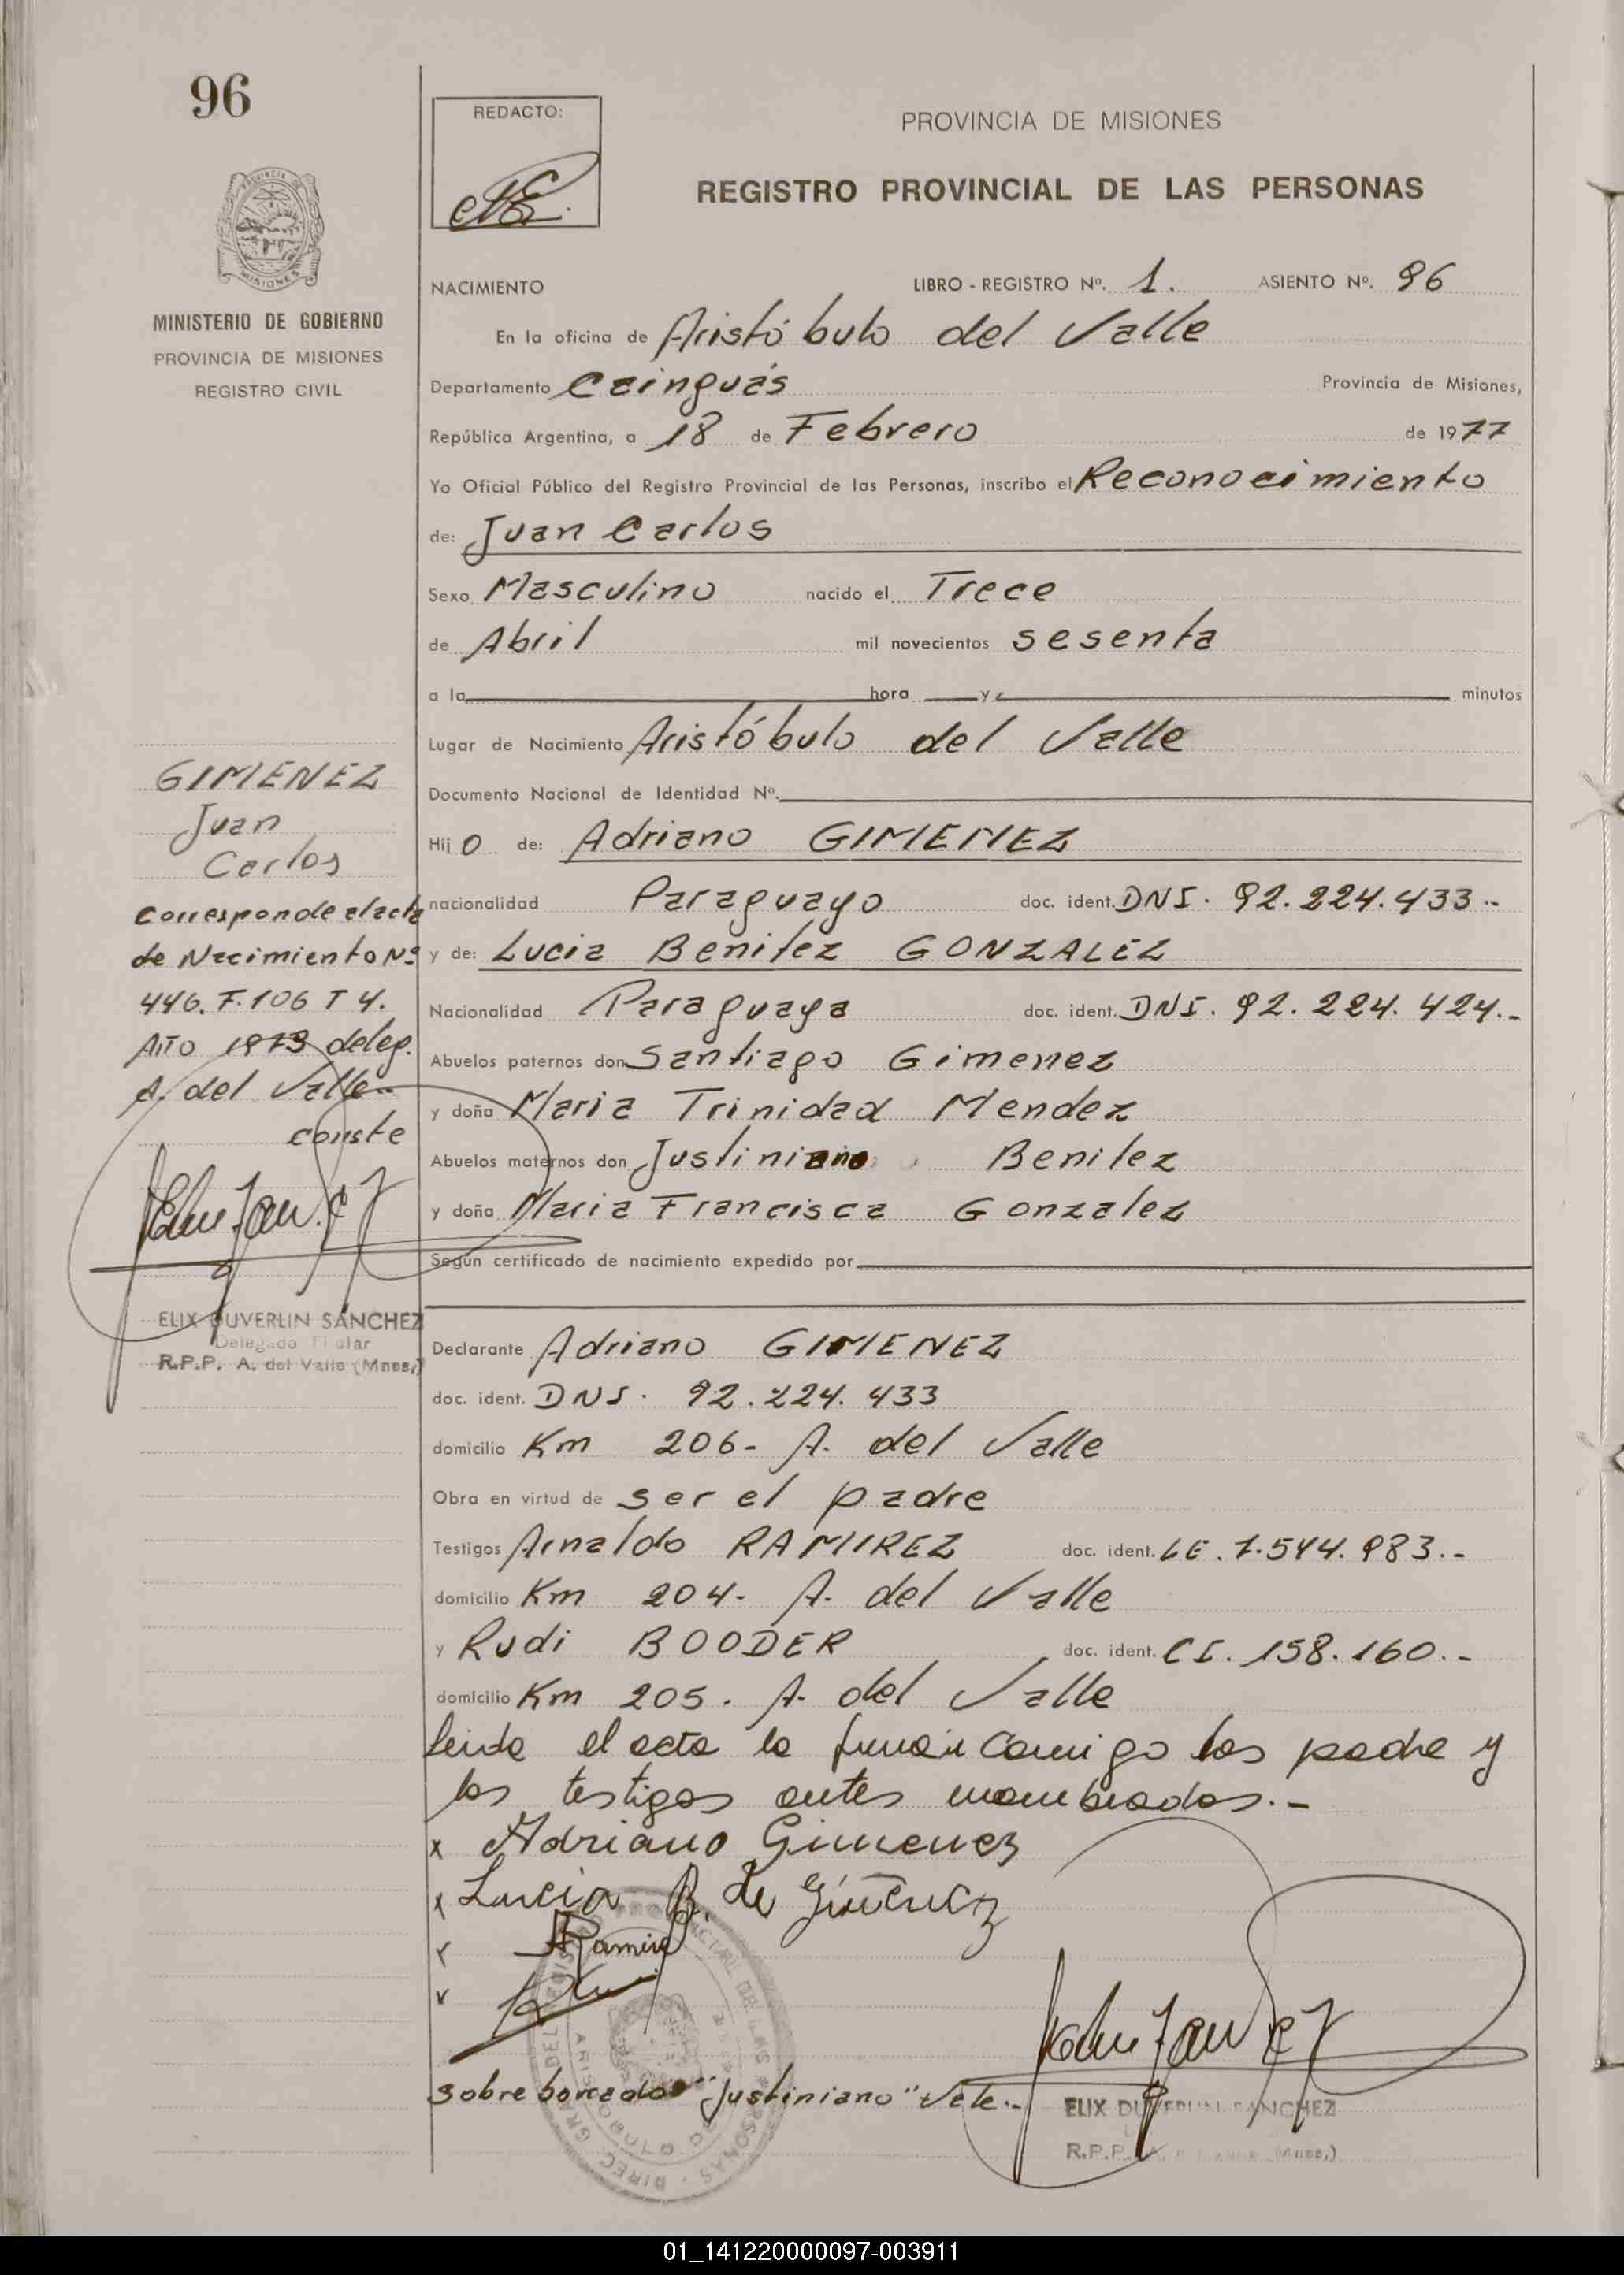 96
REDACTO:
PROVINCIA DE MISIONES
REGISTRO PROVINCIAL DE LAS PERSONAS
MINISTERIO DE GOBIERNO
PROVINCIA DE MISIONES
REGISTRO CIVIL
NACIMIENTO LIBRO - REGISTRO Nº. 1. ASIENTO Nº. 96
En la oficina de Aristóbulo del Valle
Departamento Cainguás Provincia de Misiones,
República Argentina, a 18 de Febrero de 1977
Yo Oficial Público del Registro Provincial de las Personas, inscribo el Reconocimiento
de: Juan Carlos
Sexo Masculino nacido el Trece
de Abril mil novecientos sesenta
a la hora y minutos
Lugar de Nacimiento Aristóbulo del Valle
Documento Nacional de Identidad Nº.
Hijo de: Adriano GIMENEZ
nacionalidad Paraguayo doc. ident. DNI. 92.224.433.-
y de: Lucia Benitez GONZALEZ
Nacionalidad Paraguaya doc. ident. DNI. 92.224.424.-
Abuelos paternos don Santiago Gimenez
y doña Maria Trinidad Mendez
Abuelos maternos don Justiniano Benitez
y doña Maria Francisca Gonzalez
Según certificado de nacimiento expedido por
GIMENEZ
Juan
Carlos
Corresponde el acta
de Nacimiento Nº
446. F. 106 T 4.
Año 1973 deleg.
A. del Valle.-
conste
ELIX DUVERLIN SANCHEZ
Delegado Titular
R.P.P. A. del Valle (Mnes,)
Declarante Adriano GIMENEZ
doc. ident. DNI. 92.224.433
domicilio Km 206- A. del Valle
Obra en virtud de ser el padre
Testigos Arnaldo RAMIREZ doc. ident. LE. 7.544.983.-
domicilio Km 204- A. del Valle
y Rudi BOODER doc. ident. CI. 158.160.-
domicilio Km 205. A. del Valle
leida el acta la firman conmigo los padre y
los testigos antes nombrados.-
x Adriano Gimenez
x Lucia B. de Gimenez
ARamirez
sobre borrado "Justiniano" Vale.-
ELIX DUVERLIN SANCHEZ
R.P.P. (Mnes,)
01_141220000097-003911